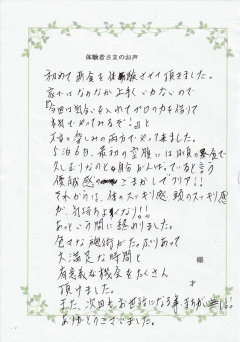 体験者さまのお声
初めて断食を体験させて頂きました。
家ではなかなか上手くいかないので
『今回は気合を入れてプロの力を借りて
本気でやってみるぞ!』と
不安と楽しみの両方でやって来ました。
5泊6日、最初の空腹には
久しぶりなのと自分がんばっていると言う
優越感のごまかしでクリア!!
それからは、体のスッキリ感、頭のスッキリ感
が、気持ちよくなり!!
あっという間に終わりました。
色々な施術がたっぷりあって
大満足な時間と
有意義な機会をたくさん
頂けました。
また、次回もお世話になる事まちがい無し!!
ありがとうございました。
様
才